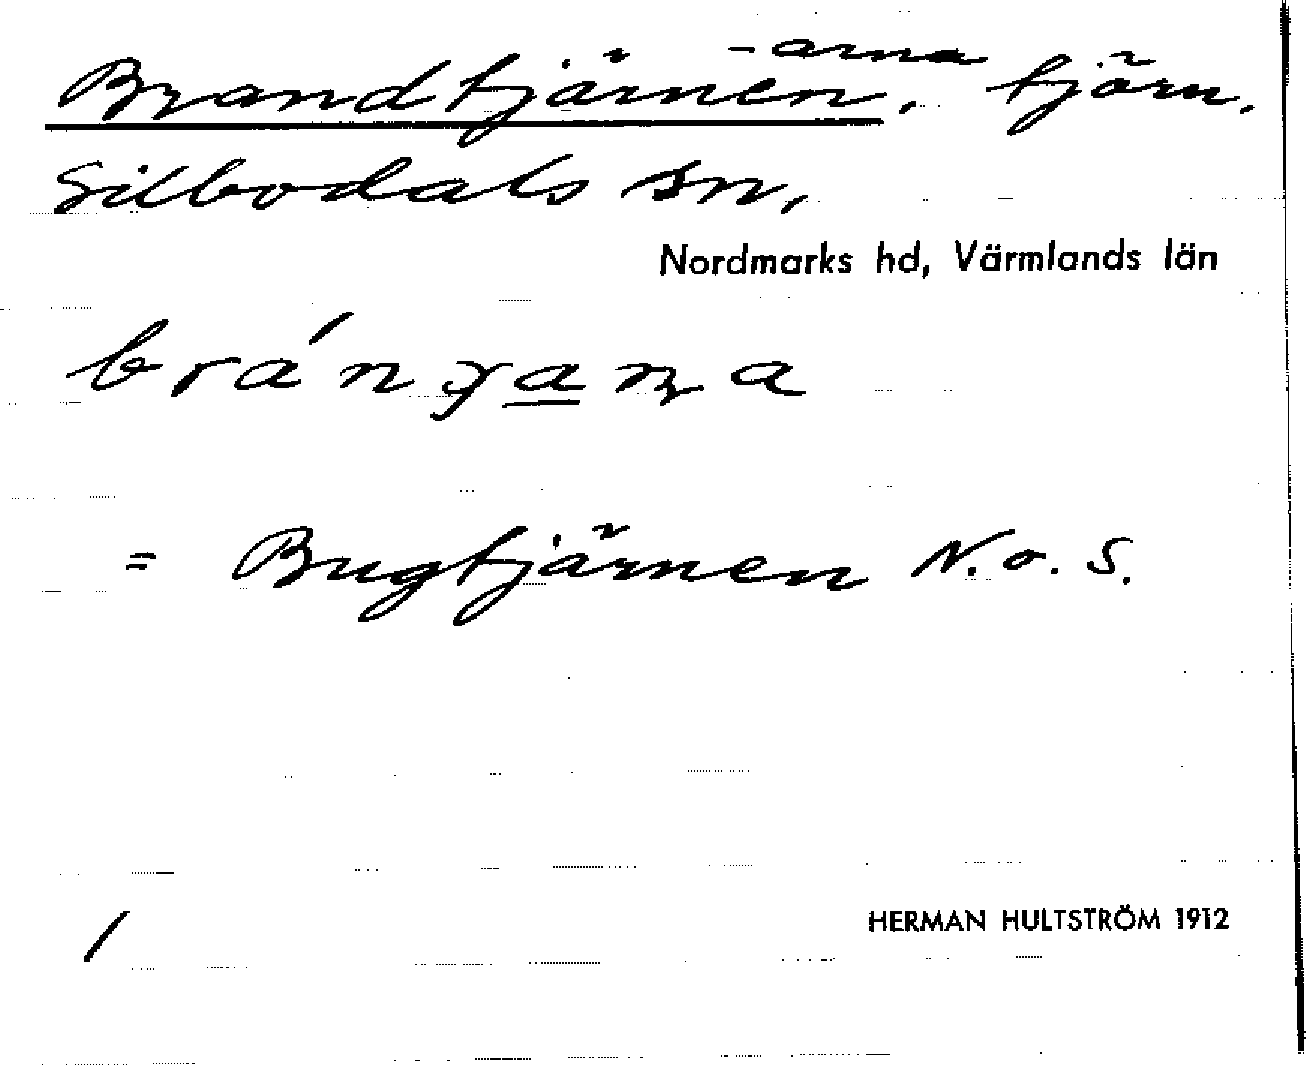 -arna
Brandtjärnen, tjörn,
Silbodals sn,
Nordmarks hd, Värmlands län
= Bugtjärnen N. o. S.
/
HERMAN HULTSTRÖM 1912